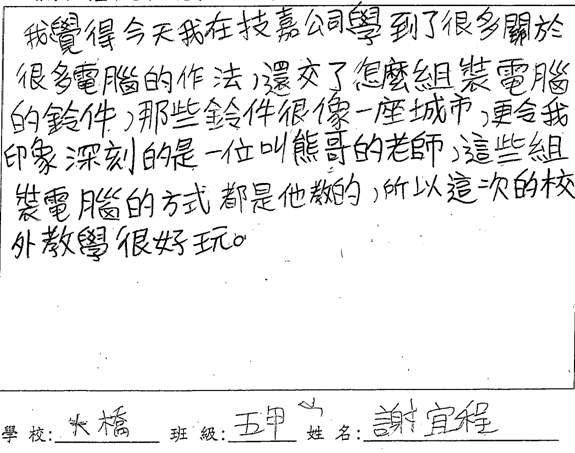 我覺得今天我在技嘉公司學到了很多關於
很多電腦的作法,還交了怎麼組裝電腦
的鈴件,那些鈴件很像一座城市,更令我
印象深刻的是一位叫熊哥的老師,這些組
裝電腦的方式都是他教的,所以這次的校
外教學很好玩。
學校:大橋 班級:五甲 姓名:謝宜程